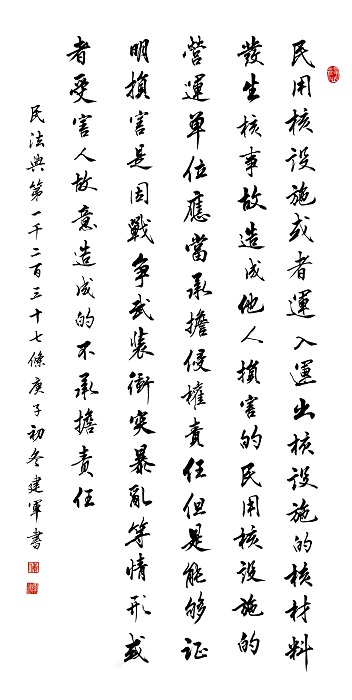 民用核設施或者運入運出核設施的核材料
發生核事故造成他人損害的民用核設施的
營運單位應當承擔侵權責任但是能夠证
明損害是因戰争武装衝突暴亂等情形或
者受害人故意造成的不承擔責任
民法典第一千二百三十七條庚子初冬建軍書